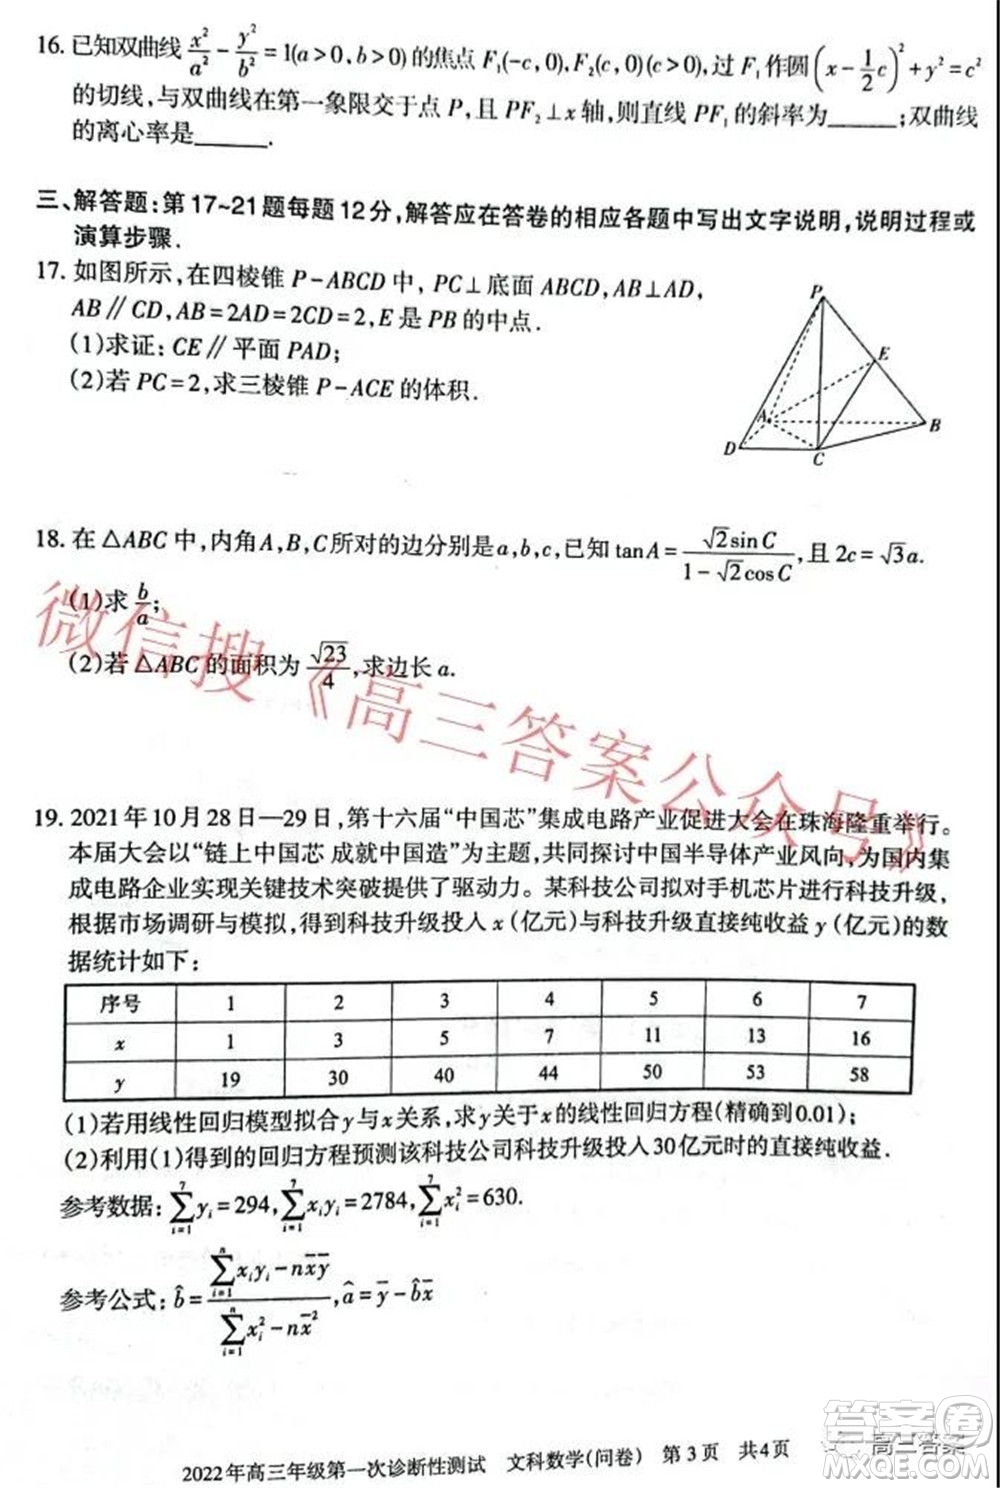 16. 已知双曲线 x²/a² - y²/b² = 1(a>0, b>0)的焦点 F₁(-c, 0), F₂(c, 0)(c>0), 过 F₁作圆(x - 1/2 c)² + y² = c²
的切线,与双曲线在第一象限交于点 P, 且 PF₂⊥x 轴,则直线 PF₁的斜率为______;双曲线
的离心率是______.
三、解答题:第17~21题每题12分,解答应在答卷的相应各题中写出文字说明,说明过程或
演算步骤.
17. 如图所示,在四棱锥 P-ABCD 中, PC⊥底面 ABCD, AB⊥AD,
AB∥CD, AB=2AD=2CD=2, E 是 PB 的中点.
(1)求证: CE∥平面 PAD;
(2)若 PC=2,求三棱锥 P-ACE 的体积.
P
E
A
B
D
C
18. 在△ABC 中,内角A, B, C所对的边分别是a, b, c,已知 tanA = √2sinC/(1-√2cosC),且 2c=√3a.
(1)求 b/a;
(2)若△ABC 的面积为 √23/4,求边长 a.
微信搜《高三答案公众号》
19. 2021年10月28日—29日,第十六届“中国芯”集成电路产业促进大会在珠海隆重举行。
本届大会以“链上中国芯 成就中国造”为主题,共同探讨中国半导体产业风向,为国内集
成电路企业实现关键技术突破提供了驱动力。某科技公司拟对手机芯片进行科技升级,
根据市场调研与模拟,得到科技升级投入 x (亿元)与科技升级直接纯收益 y (亿元)的数
据统计如下:
序号 1 2 3 4 5 6 7
x 1 3 5 7 11 13 16
y 19 30 40 44 50 53 58
(1)若用线性回归模型拟合 y 与 x 关系,求 y 关于 x 的线性回归方程(精确到0.01);
(2)利用(1)得到的回归方程预测该科技公司科技升级投入30亿元时的直接纯收益.
参考数据: ∑_{i=1}^{7} yᵢ=294, ∑_{i=1}^{7} xᵢyᵢ=2784, ∑_{i=1}^{7} xᵢ²=630.
参考公式: b̂ = (∑_{i=1}^{n} xᵢyᵢ - nx̄ȳ)/(∑_{i=1}^{n} xᵢ² - nx̄²), â = ȳ - b̂x̄
答案卷
高三答案
2022年高三年级第一次诊断性测试 文科数学(问卷) 第3页 共4页